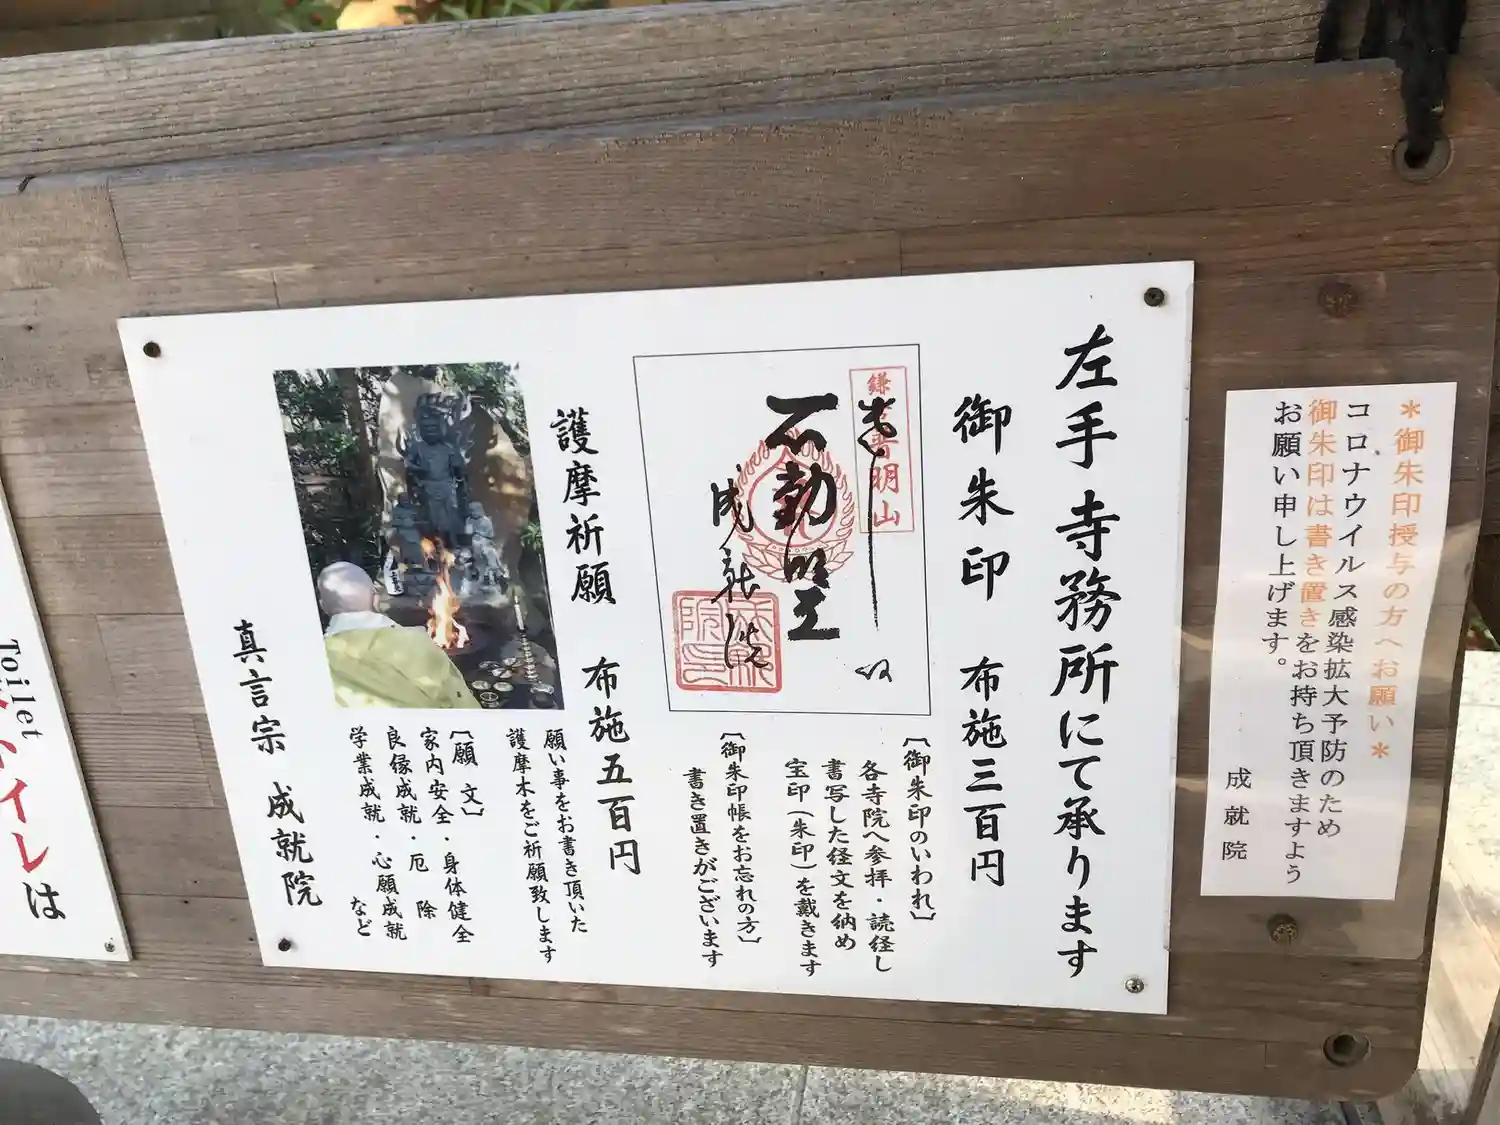 ＊御朱印授与の方へお願い＊
コロナウイルス感染拡大予防のため
御朱印は書き置きをお持ち頂きますよう
お願い申し上げます。
成就院
左手寺務所にて承ります
御朱印　布施三百円
〔御朱印のいわれ〕
各寺院へ参拝・読経し
書写した経文を納め
宝印（朱印）を戴きます
〔御朱印帳をお忘れの方〕
書き置きがございます
普明山
不動明王
成就院
護摩祈願　布施五百円
願い事をお書き頂いた
護摩木をご祈願致します
〔願　文〕
家内安全・身体健全
良縁成就・厄　除
学業成就・心願成就
など
真言宗　成就院
Toilet
トイレは